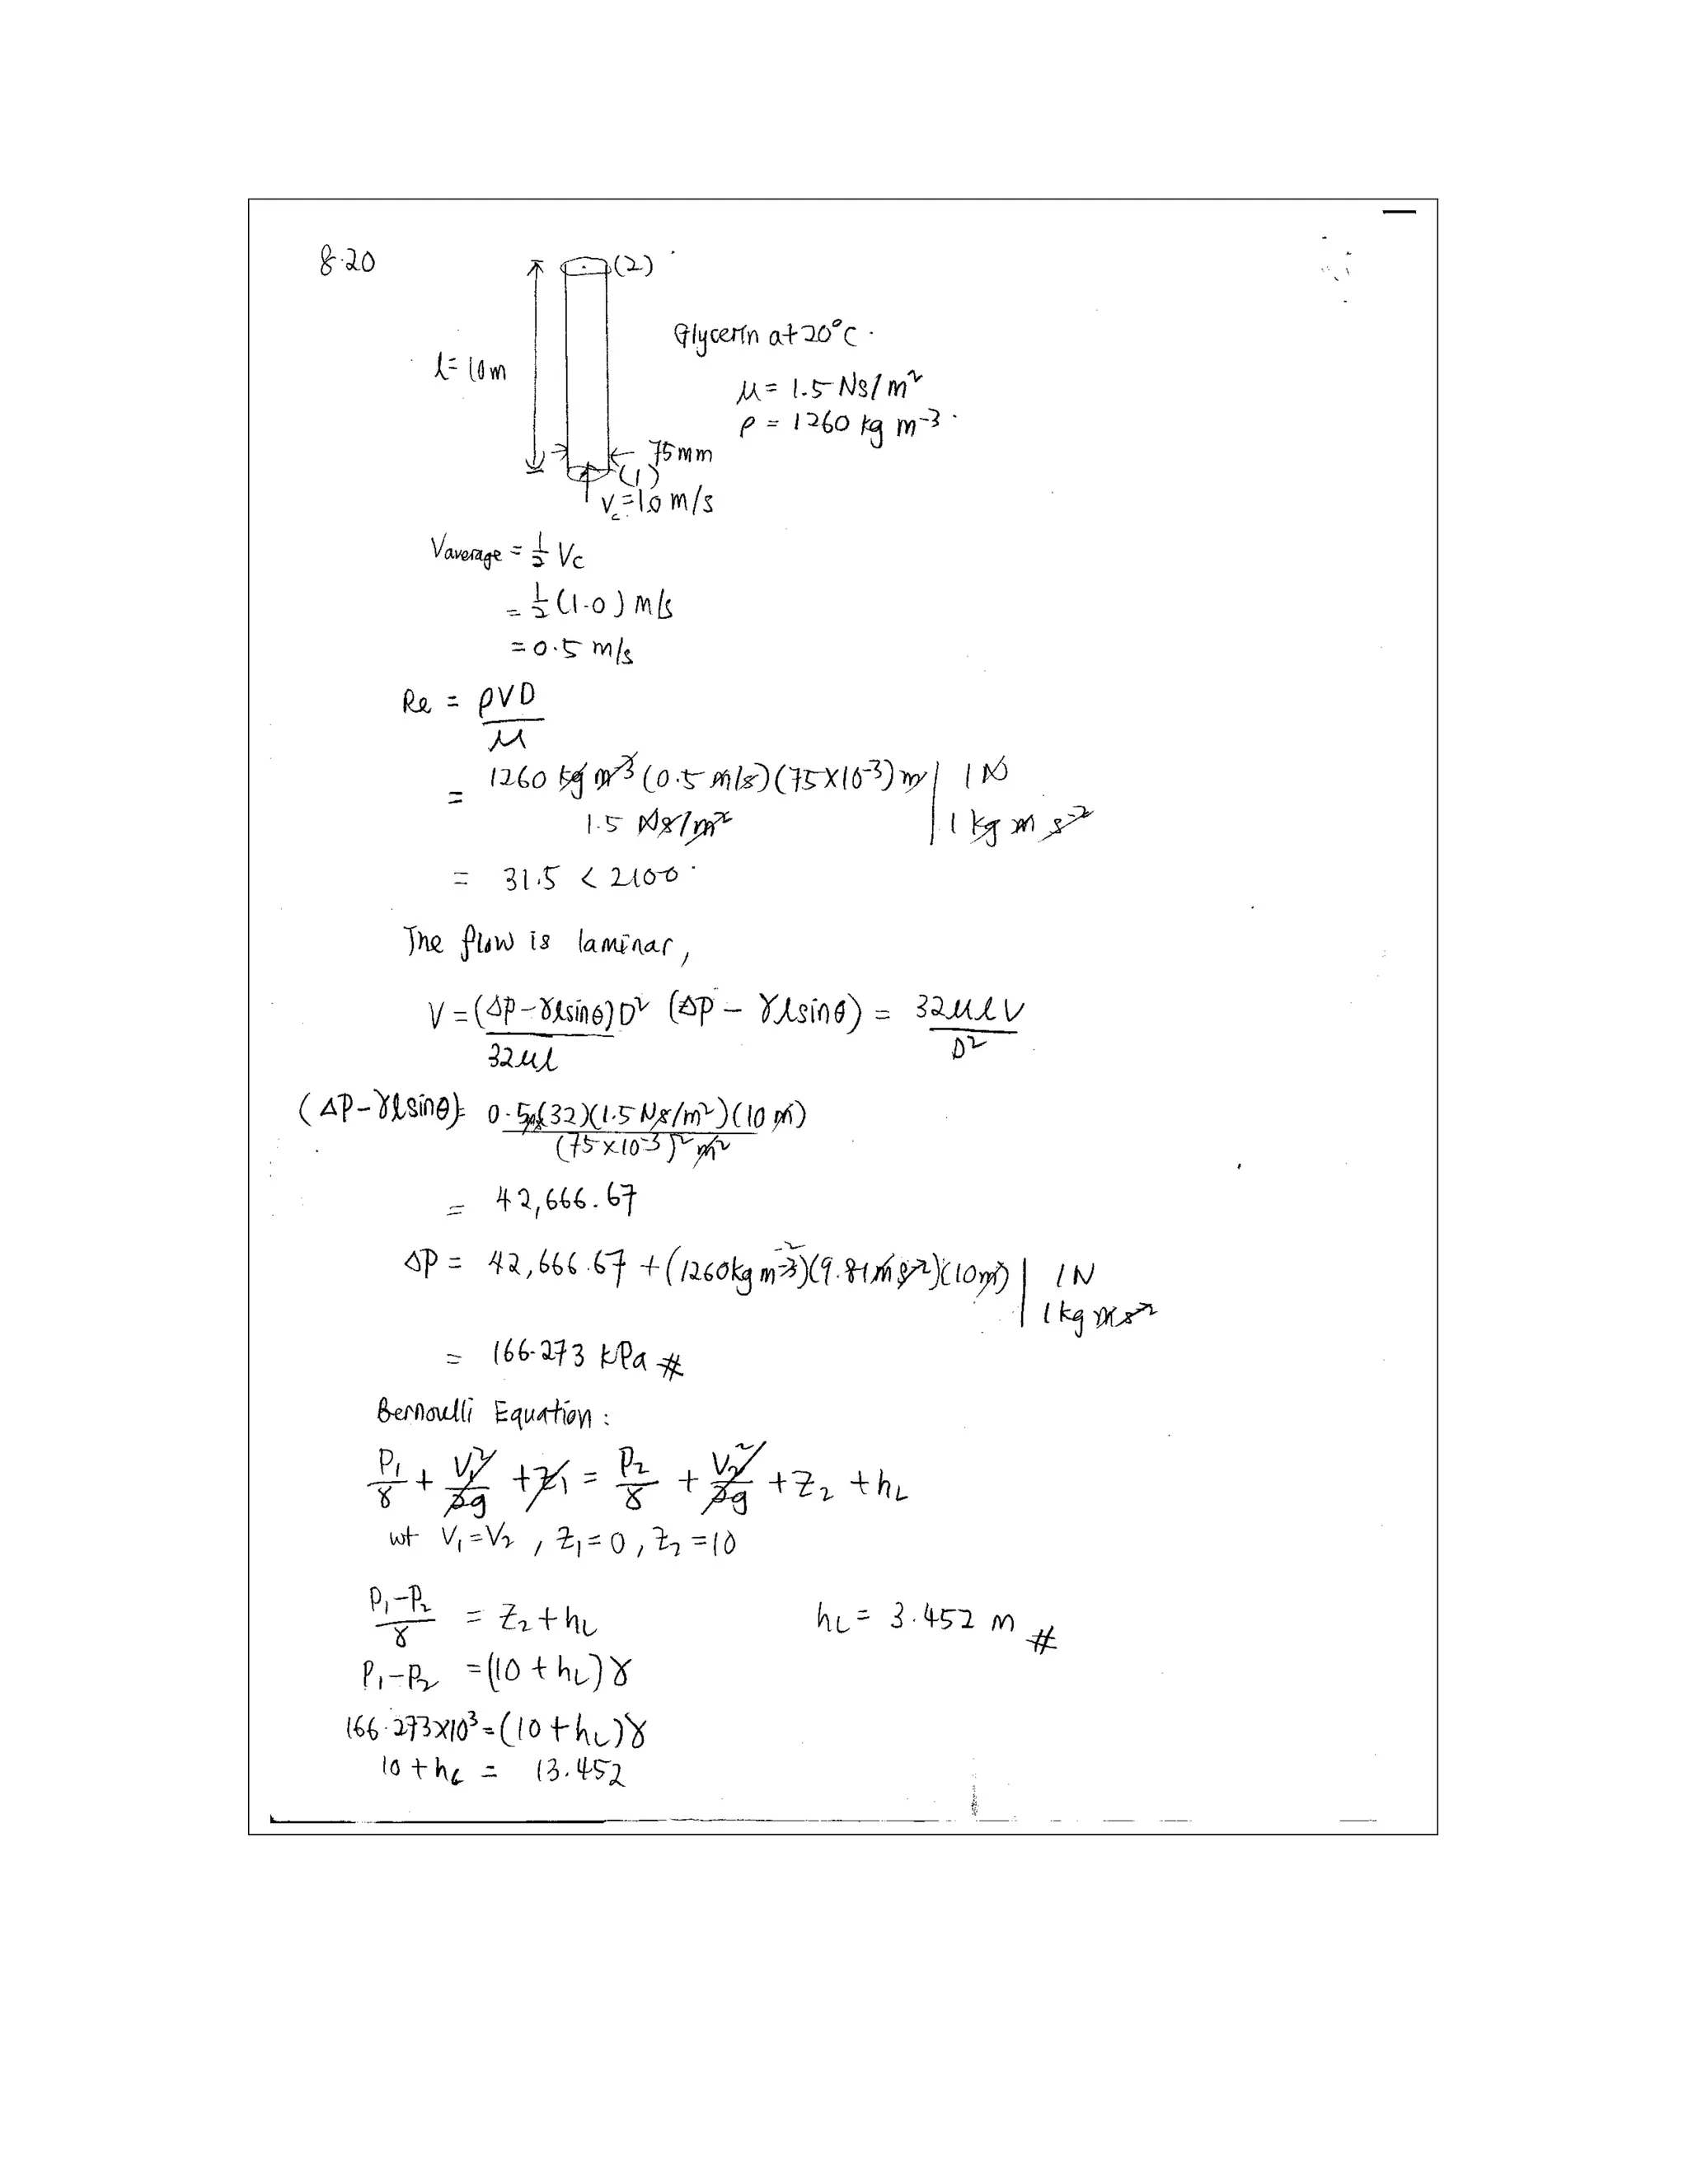 8.20
(2)
Glycerin at 20°C.
l = 10m
μ = 1.5 Ns/m²
ρ = 1260 kg m⁻³.
75mm
(1)
Vc = 1.0 m/s
Vaverage = 1/2 Vc
= 1/2 (1.0) m/s
= 0.5 m/s
Re = ρVD / μ
= 1260 kg m⁻³ (0.5 m/s)(75×10⁻³) m / 1.5 Ns/m² | 1 N / 1 kg m s⁻²
= 31.5 < 2100.
The flow is laminar,
V = (ΔP - γlsinθ)D² / 32μl (ΔP - γlsinθ) = 32μlV / D²
(ΔP - γlsinθ) = 0.5 m/s (32)(1.5 Ns/m²)(10 m) / (75×10⁻³)² m²
= 42,666.67
ΔP = 42,666.67 + (1260kg m⁻³ ⁻²)(9.81 m s⁻²)(10m) | 1N / 1 kg m s⁻²
= 166.273 kPa #
Bernoulli Equation:
P₁/γ + V₁²/2g + Z₁ = P₂/γ + V₂²/2g + Z₂ + hL
wt V₁ = V₂, Z₁ = 0, Z₂ = 10
P₁-P₂ / γ = Z₂ + hL
hL = 3.452 m #
P₁-P₂ = (10 + hL)γ
166.273×10³ = (10 + hL)γ
10 + hL = 13.452